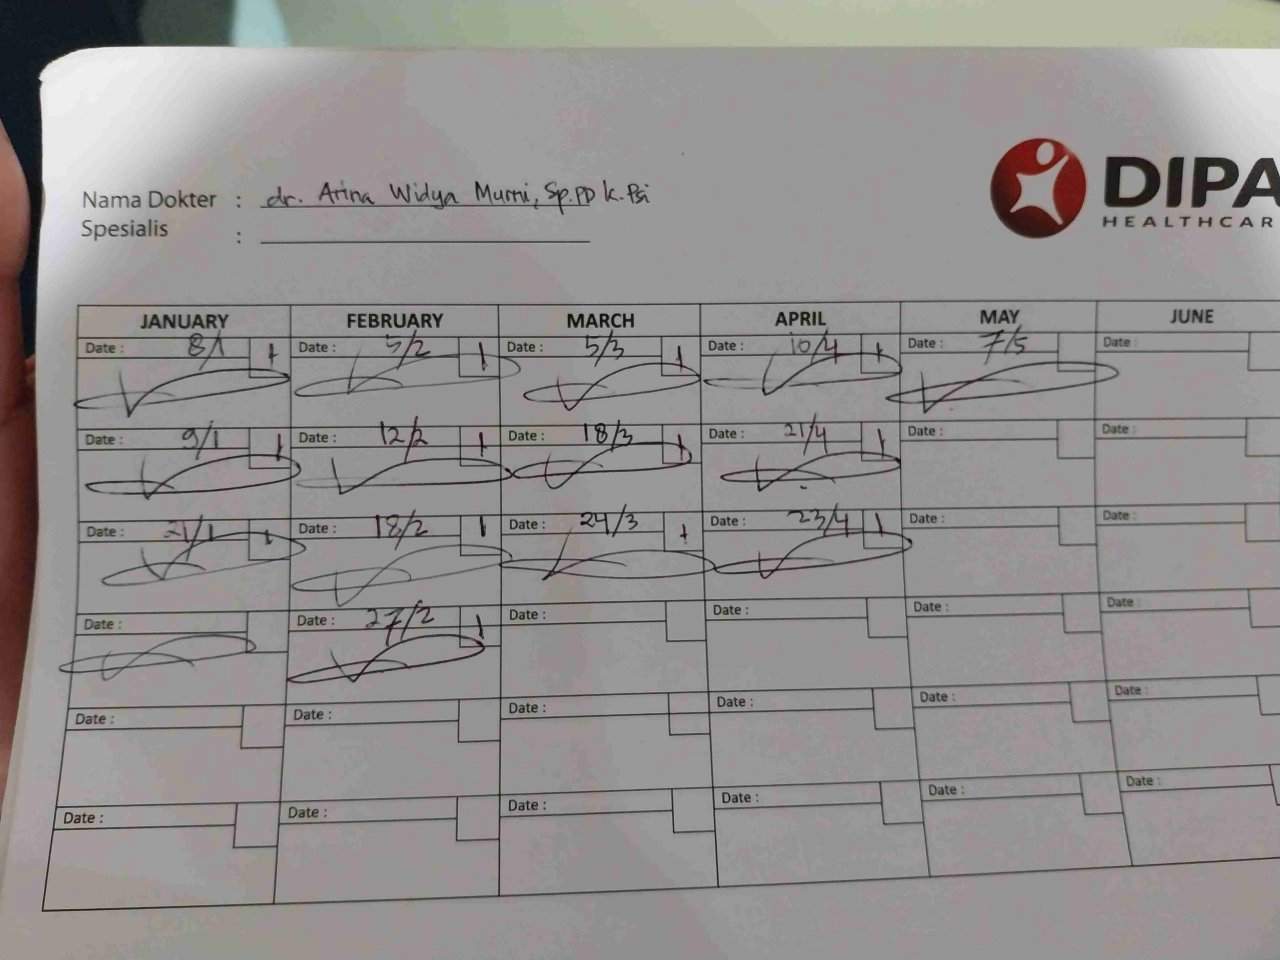 DIPA
HEALTHCAR
Nama Dokter : dr. Arina Widya Murni, Sp.PD K.Psi
Spesialis :
JANUARY FEBRUARY MARCH APRIL MAY JUNE
Date : 8/1 1 Date : 5/2 1 Date : 5/3 1 Date : 10/4 1 Date : 7/5 Date :
Date : 9/1 1 Date : 12/2 1 Date : 18/3 1 Date : 21/4 1 Date : Date :
Date : 21/1 1 Date : 18/2 1 Date : 24/3 1 Date : 23/4 1 Date : Date :
Date : Date : 27/2 1 Date : Date : Date : Date :
Date : Date : Date : Date : Date : Date :
Date : Date : Date : Date : Date : Date :